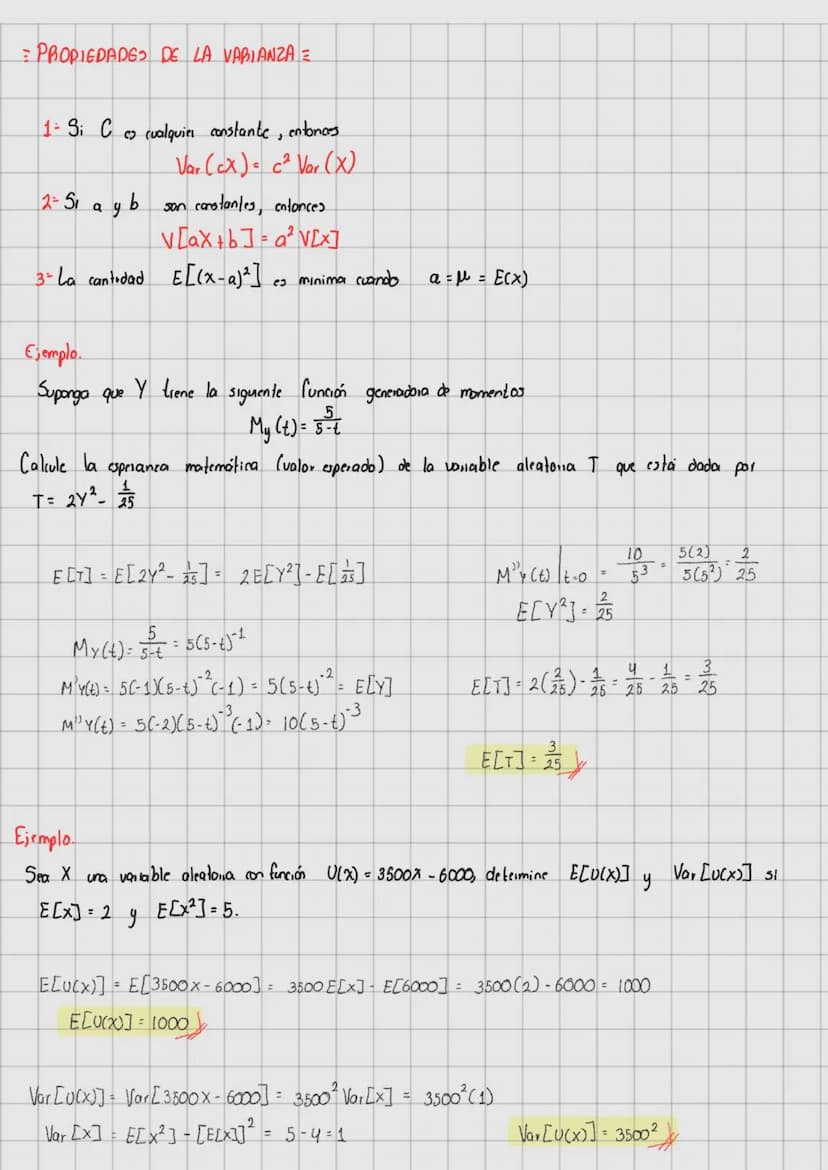 = PROPIEDADES DE LA VARIANZA =
1- Si C es cualquier constante, entonces
Var(cX) = c² Var(X)
2- Si a y b son constantes, entonces
V[aX+b] = a² V[X]
3- La cantidad E[(x-a)²] es minima cuando a = μ = E(X)
Ejemplo.
Suponga que Y tiene la siguiente función generadora de momentos
My(t) = 5/5-t
Calcule la esperanza matemática (valor esperado) de la variable aleatoria T que está dada por
T = 2Y² - 1/25
E[T] = E[2Y² - 1/25] = 2E[Y²] - E[1/25]
My(t) = 5/5-t = 5(5-t)⁻¹
M'y(t) = 5(-1)(5-t)⁻²(-1) = 5(5-t)⁻² = E[Y]
M''Y(t) = 5(-2)(5-t)⁻³(-1) = 10(5-t)⁻³
M''y(t)|t=0 = 10/5³ = 5(2)/5(5²) = 2/25
E[Y²] = 2/25
E[T] = 2(2/25) - 1/25 = 4/25 - 1/25 = 3/25
E[T] = 3/25
Ejemplo.
Sea X una variable aleatoria con función U(x) = 3500x - 6000, determine E[U(x)] y Var[U(x)] si
E[x] = 2 y E[x²] = 5.
E[U(X)] = E[3500X - 6000] = 3500E[x] - E[6000] = 3500(2) - 6000 = 1000
E[U(X)] = 1000
Var[U(X)] = Var[3500X - 6000] = 3500² Var[x] = 3500²(1)
Var[x] = E[x²] - [E[x]]² = 5 - 4 = 1
Var[U(x)] = 3500²